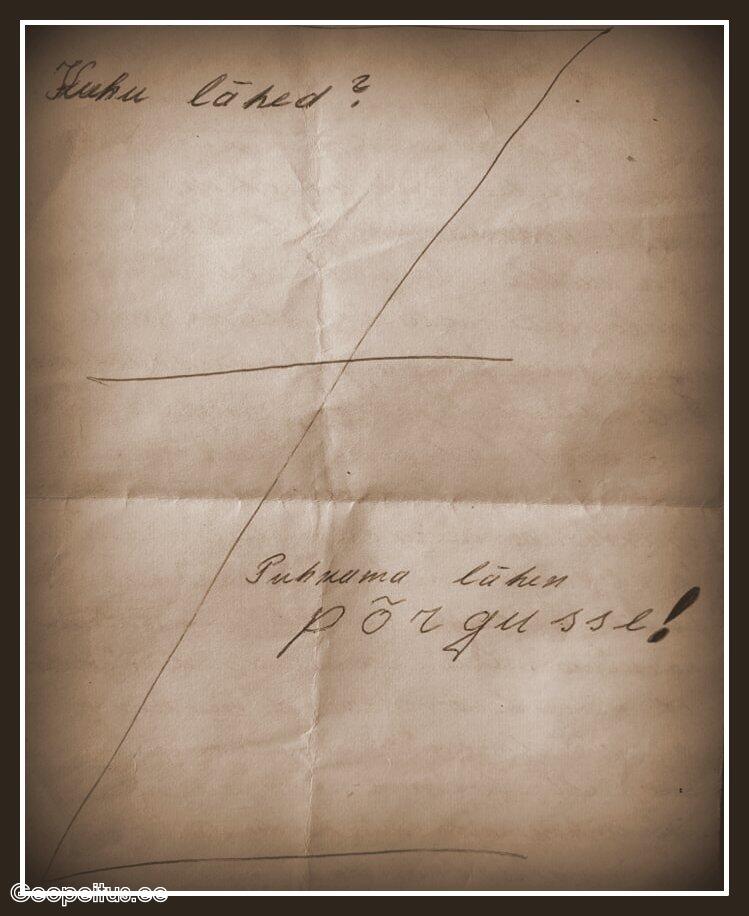 Kuhu lähed?
Puhkama lähen
põrgusse!
Geopeitus.ee